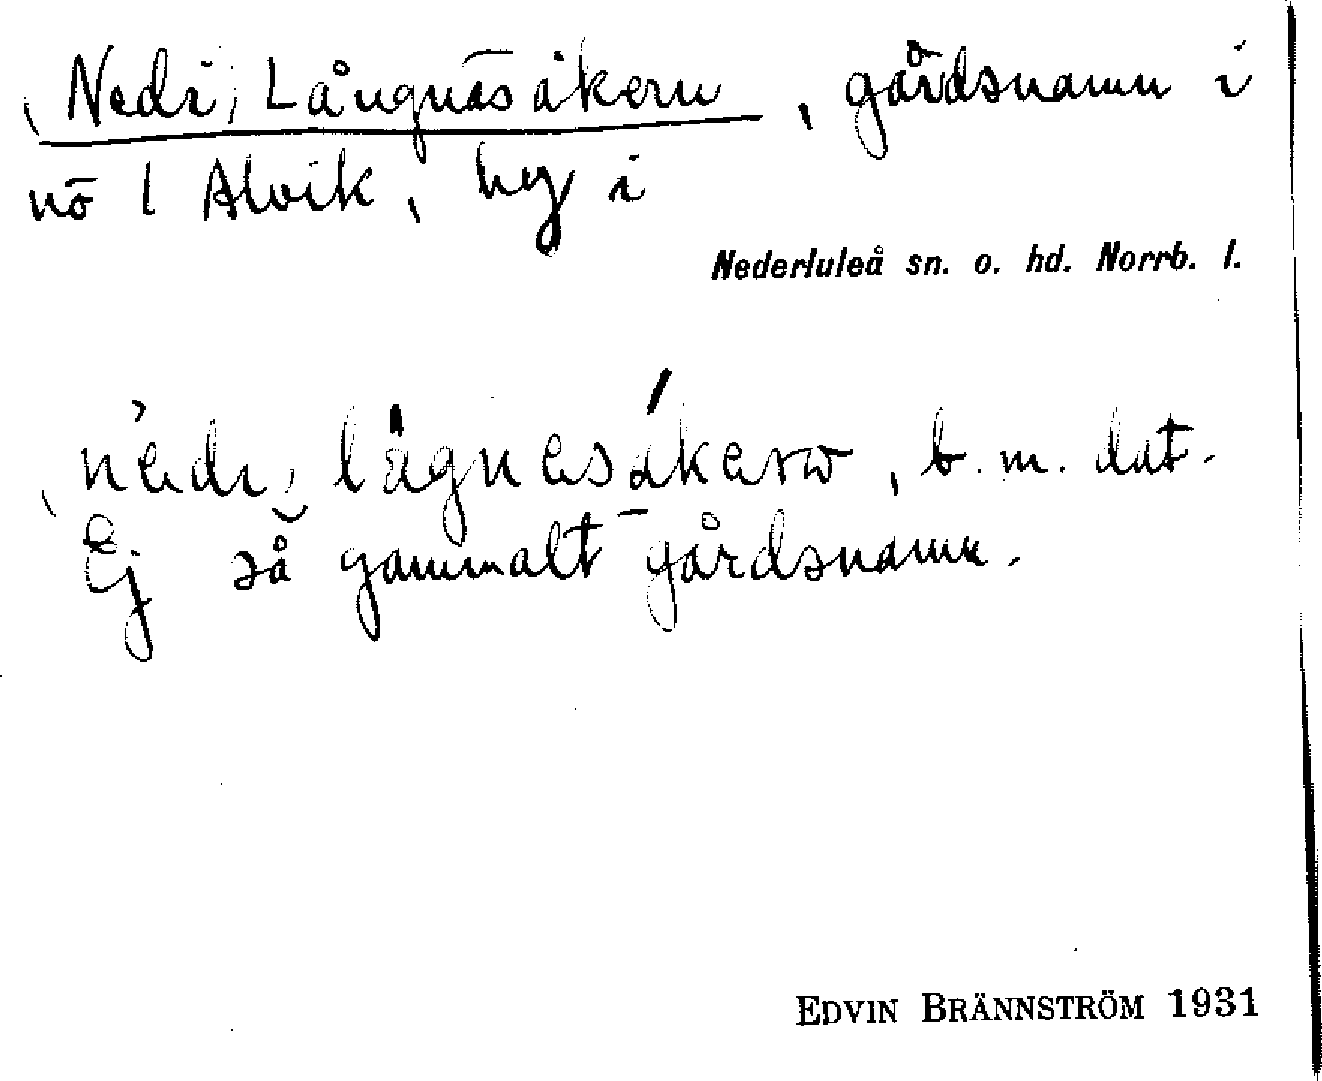 , Nedi, Långnäsåkern, gårdsnamn i
nö l Alvik, by i
Nederluleå sn. o. hd. Norrb. l.
b. m. dat.
Ej så gammalt gårdsnamn.
EDVIN BRÄNNSTRÖM 1931